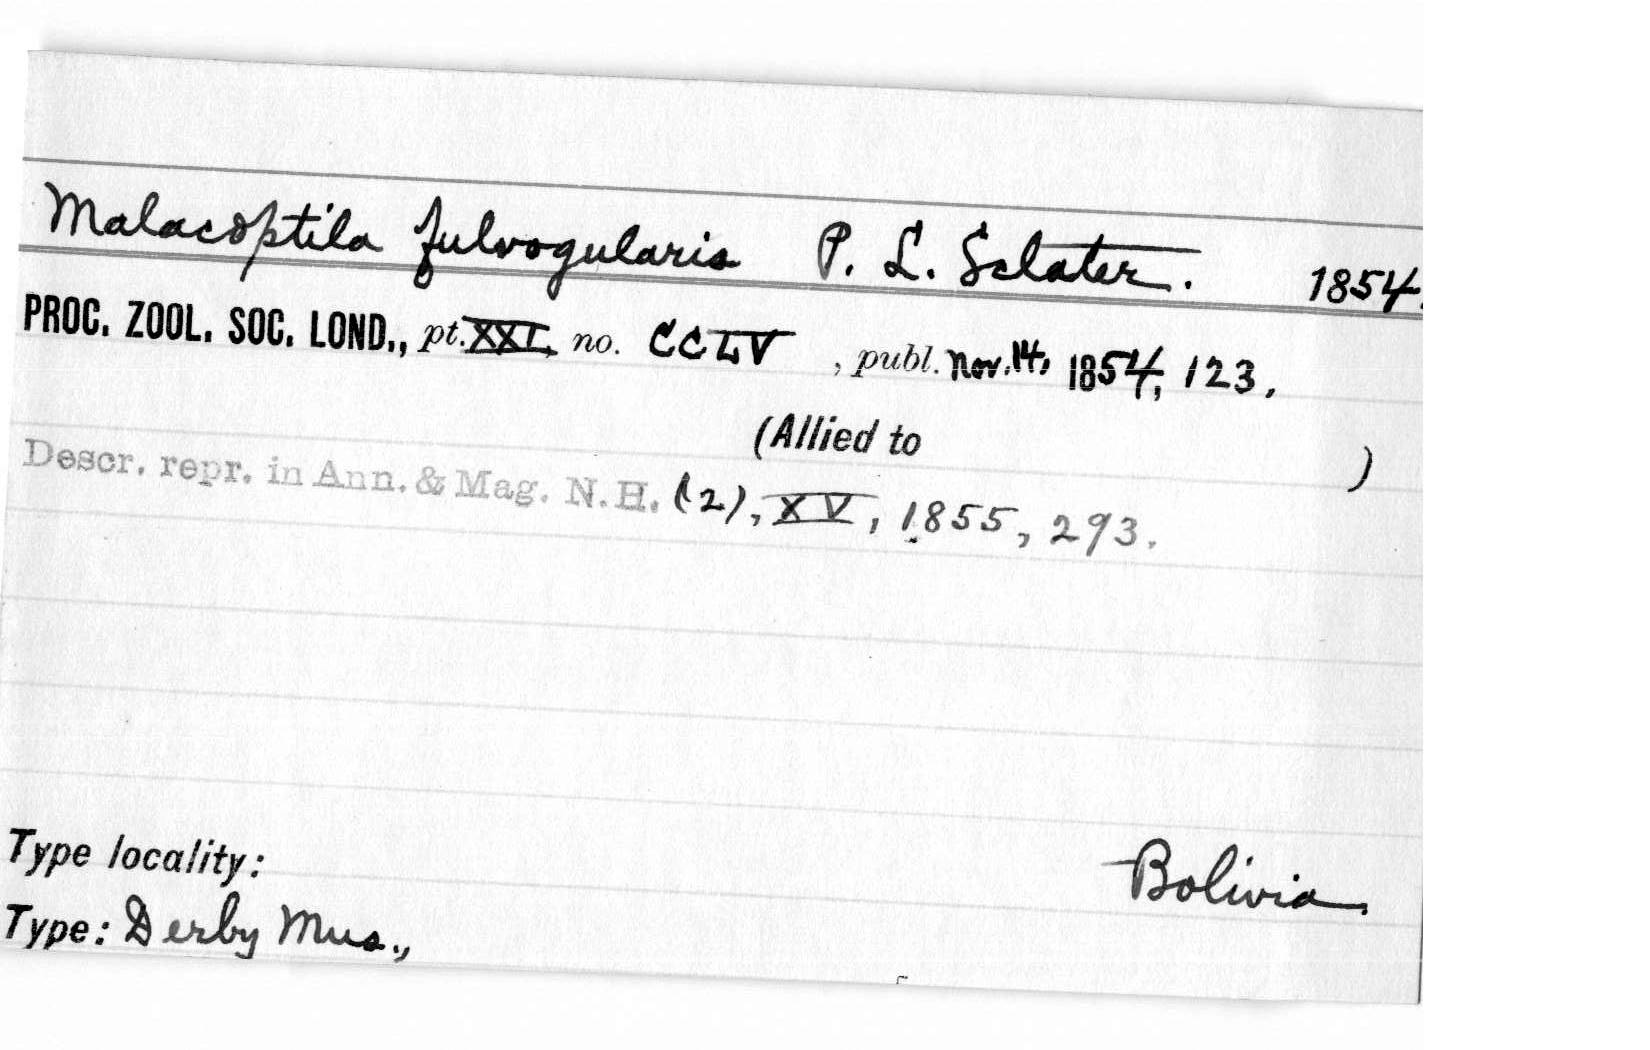 Malacoptila fulvogularis P. L. Sclater. 1854.
PROC. ZOOL. SOC. LOND., pt. XXI, no. CCLV , publ. Nov. 14, 1854, 123.
(Allied to )
Descr. repr. in Ann. & Mag. N.H. (2), XV, 1855, 293.
Type locality: Bolivia
Type: Derby Mus.,